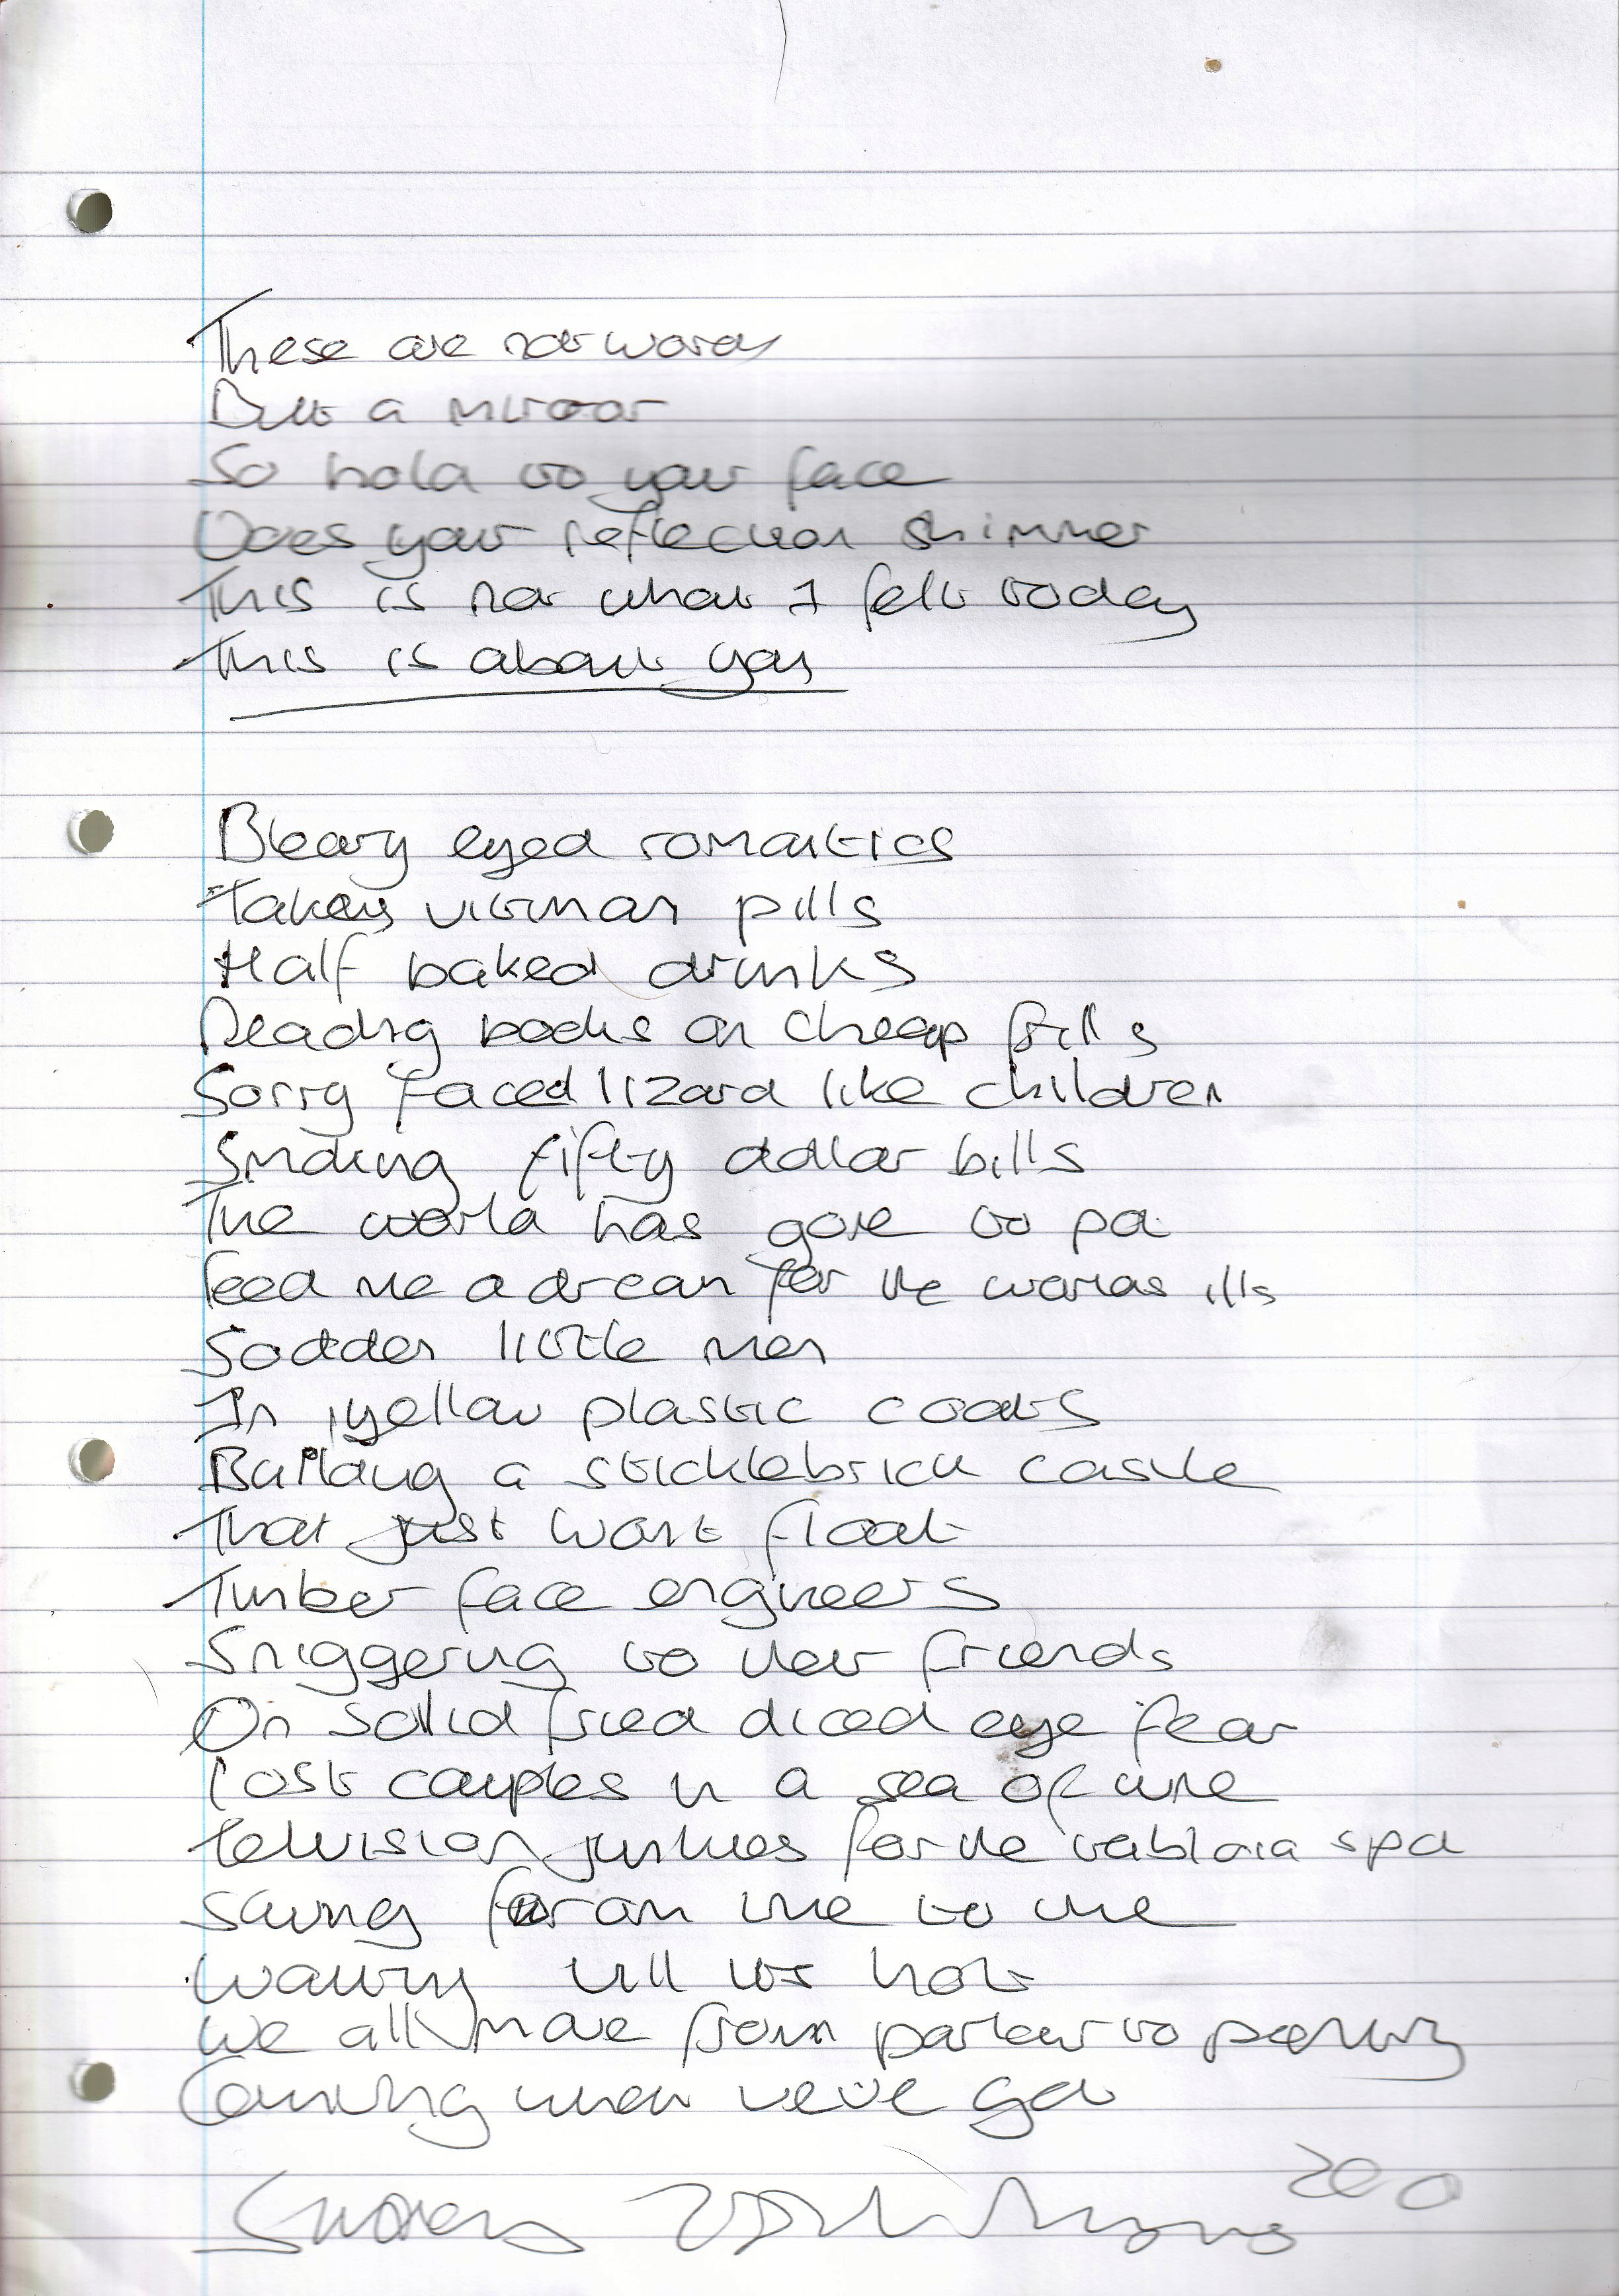 These are not words
But a mirror
So hold to your face
Does your reflection shimmer
This is not what I felt today
This is about you
Bleary eyed romantics
Taking vitman pills
Half baked drinks
Reading books on cheap frills
Sorry faced lizard like children
Smoking fifty dollar bills
The world has gone to pot
Feed me a dream for the worlds ills
Sodden little men
In yellow plastic coats
Building a sticklebrick castle
That just wont float
Timber face engineers
Sniggering to their friends
On solid fried diced eye fear
Lost couples in a sea of wine
Television junkies for the tabloid spa
Saving for an line to line
Waiting till its hot
We all move from parlour to
Counting what weve got